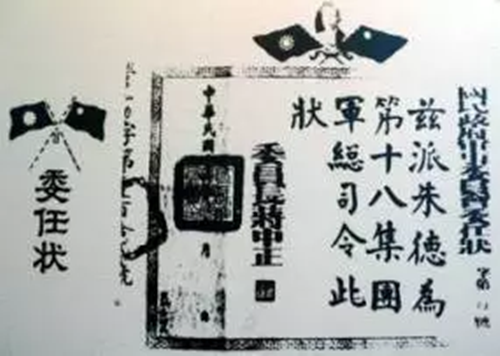 國民政府軍事委員會委任狀
字第 號
茲派朱德為
第十八集團
軍總司令此
狀
委員長蔣中正
中華民國
月
委任状